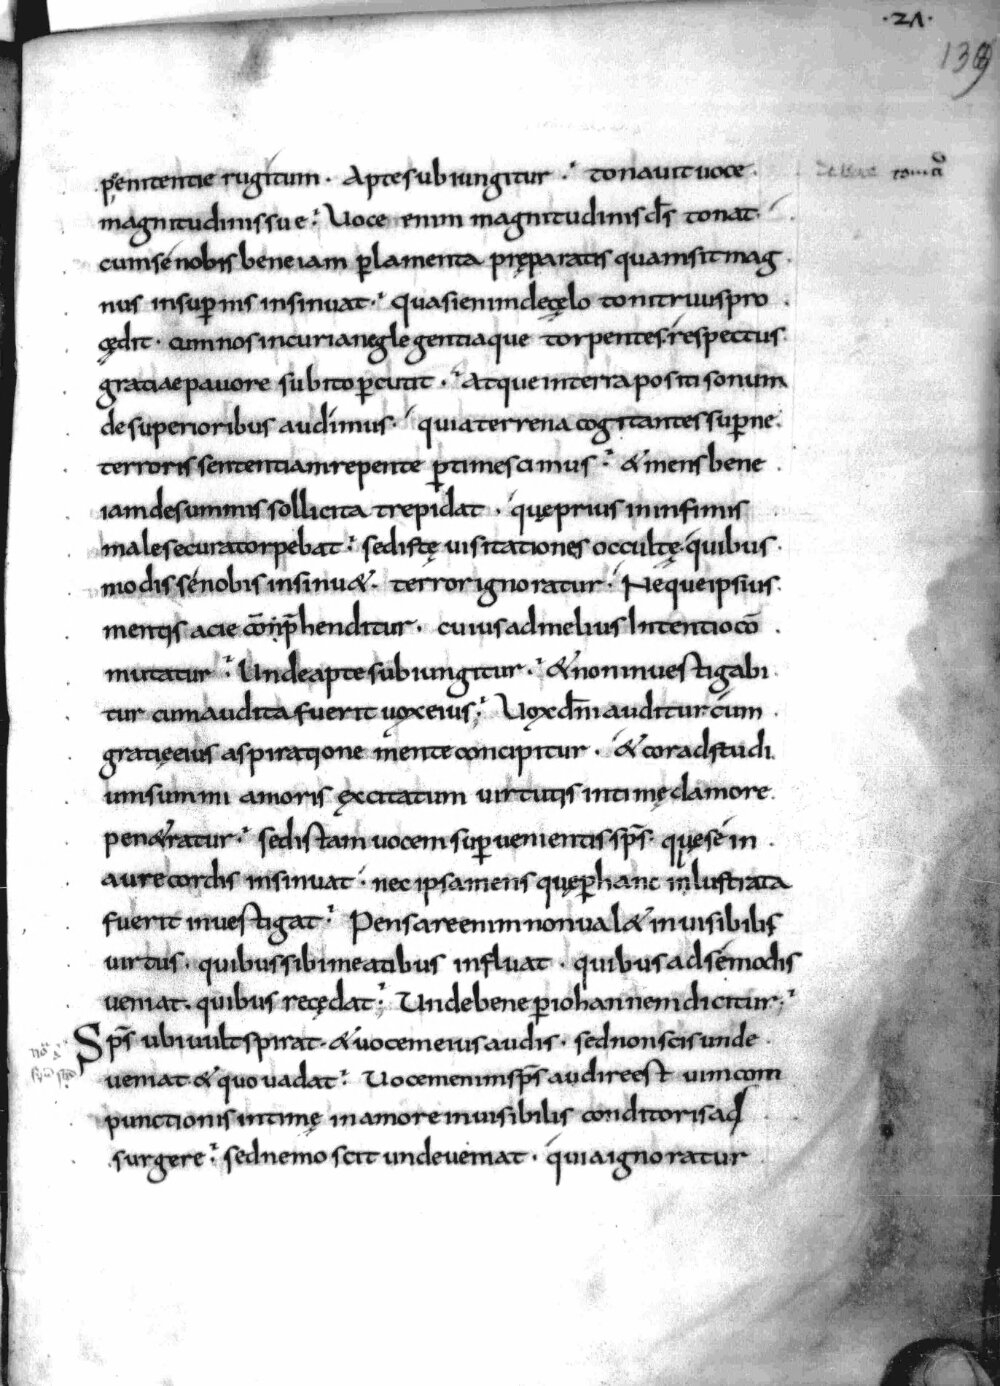 ·21·
139
pęnitentie rugitum. Apte subiungitur. tonauit uoce
magnitudinis sue. Uoce enim magnitudinis d̅s tonat.
cum sé nobis bene iam p̲lamenta pręparatis quam sit mag
nus in sup̲nis insinuat. quasi enim de cęlo tonitruus pro
cędit. cum nos in curia neglegentiaque torpentes. respectus
gratiae pauore subito p̲cutit. Atque in terra positi sonum
de superioribus audimus. quia terrena cogitantes sup̲ne
terroris sententiam repente p̲timescimus. & mens bene
iam de summis sollicita trepidat. quę prius in infimis
male secura torpebat. sed istę uisitationes occultę. quibus
modis sé nobis insinu&. terror ignoratur. Neque ipsius
mentis acie co̅np̅henditur. cuius ad melius Intentio co̅
mutatur. Unde apte subiungitur. & non inuestigabi
tur cum audita fuerit uox eius; Uox dn̅i auditur cum
gratię eius aspiratione mente concipitur. & cor ad studi
um summi amoris ęxcitatum uirtutis intimę clamore
pen&ratur. sed istam uocem sup̲uenientis sp̅s. quę sé in
aure cordis insinuat. nec ipsa mens quę p̲ hanc inlustrata
fuerit inuestigat. Pensare enim non ual& inuisibilis
uirtus. quibus sibi meatibus influat. quibus ad sé modis
ueniat. quibus recędat; Unde bene p̲ iohannem dicitur;
Sp̅s ubi uult spirat. & uocem eius audis. sed non scis unde
ueniat & quo uadat. Uocem enim sp̅s audire est uim com
punctionis intimę in amore inuisibilis conditoris ad
surgere. sed nemo scit unde ueniat. quia ignoratur